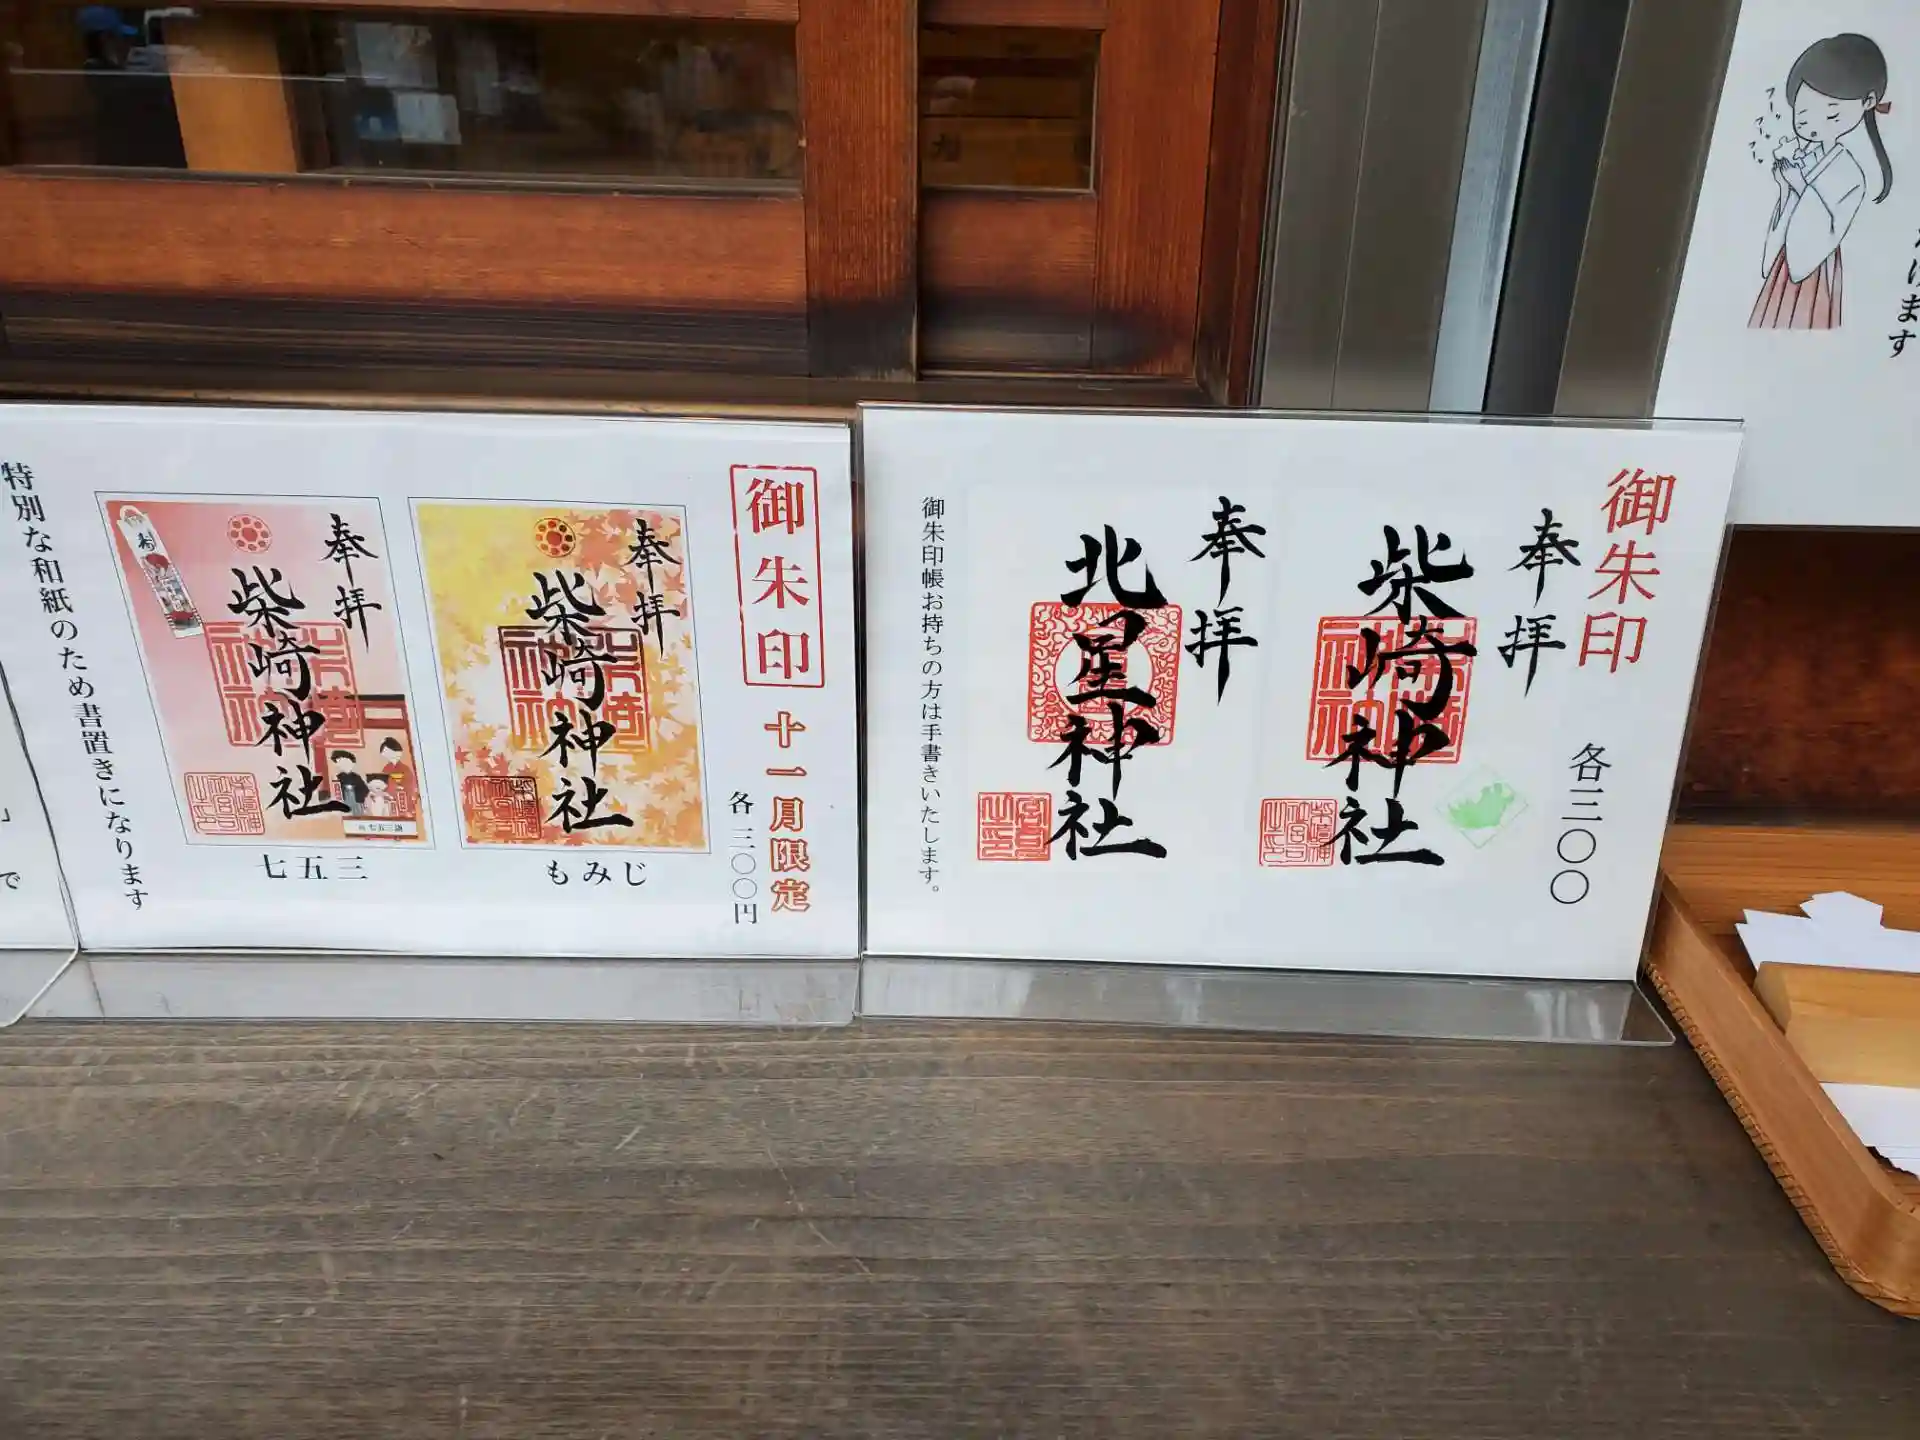 御朱印
各三〇〇
奉拝
柴崎神社
奉拝
北星神社
御朱印帳お持ちの方は手書きいたします。
御朱印
十一月限定
各三〇〇円
奉拝
柴崎神社
もみじ
奉拝
柴崎神社
七五三
特別な和紙のため書置きになります
フーッ
フーッ
フーッ
けます
で